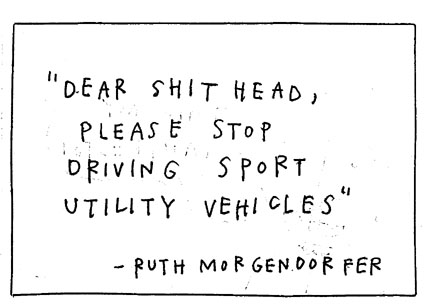 "DEAR SHIT HEAD,
PLEASE STOP
DRIVING SPORT
UTILITY VEHICLES"
- RUTH MORGENDORFER